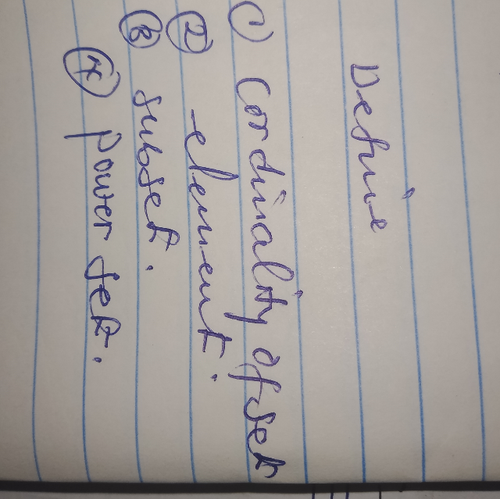 Define
1) Cordinality of set
2) element.
3) subset.
4) power set.